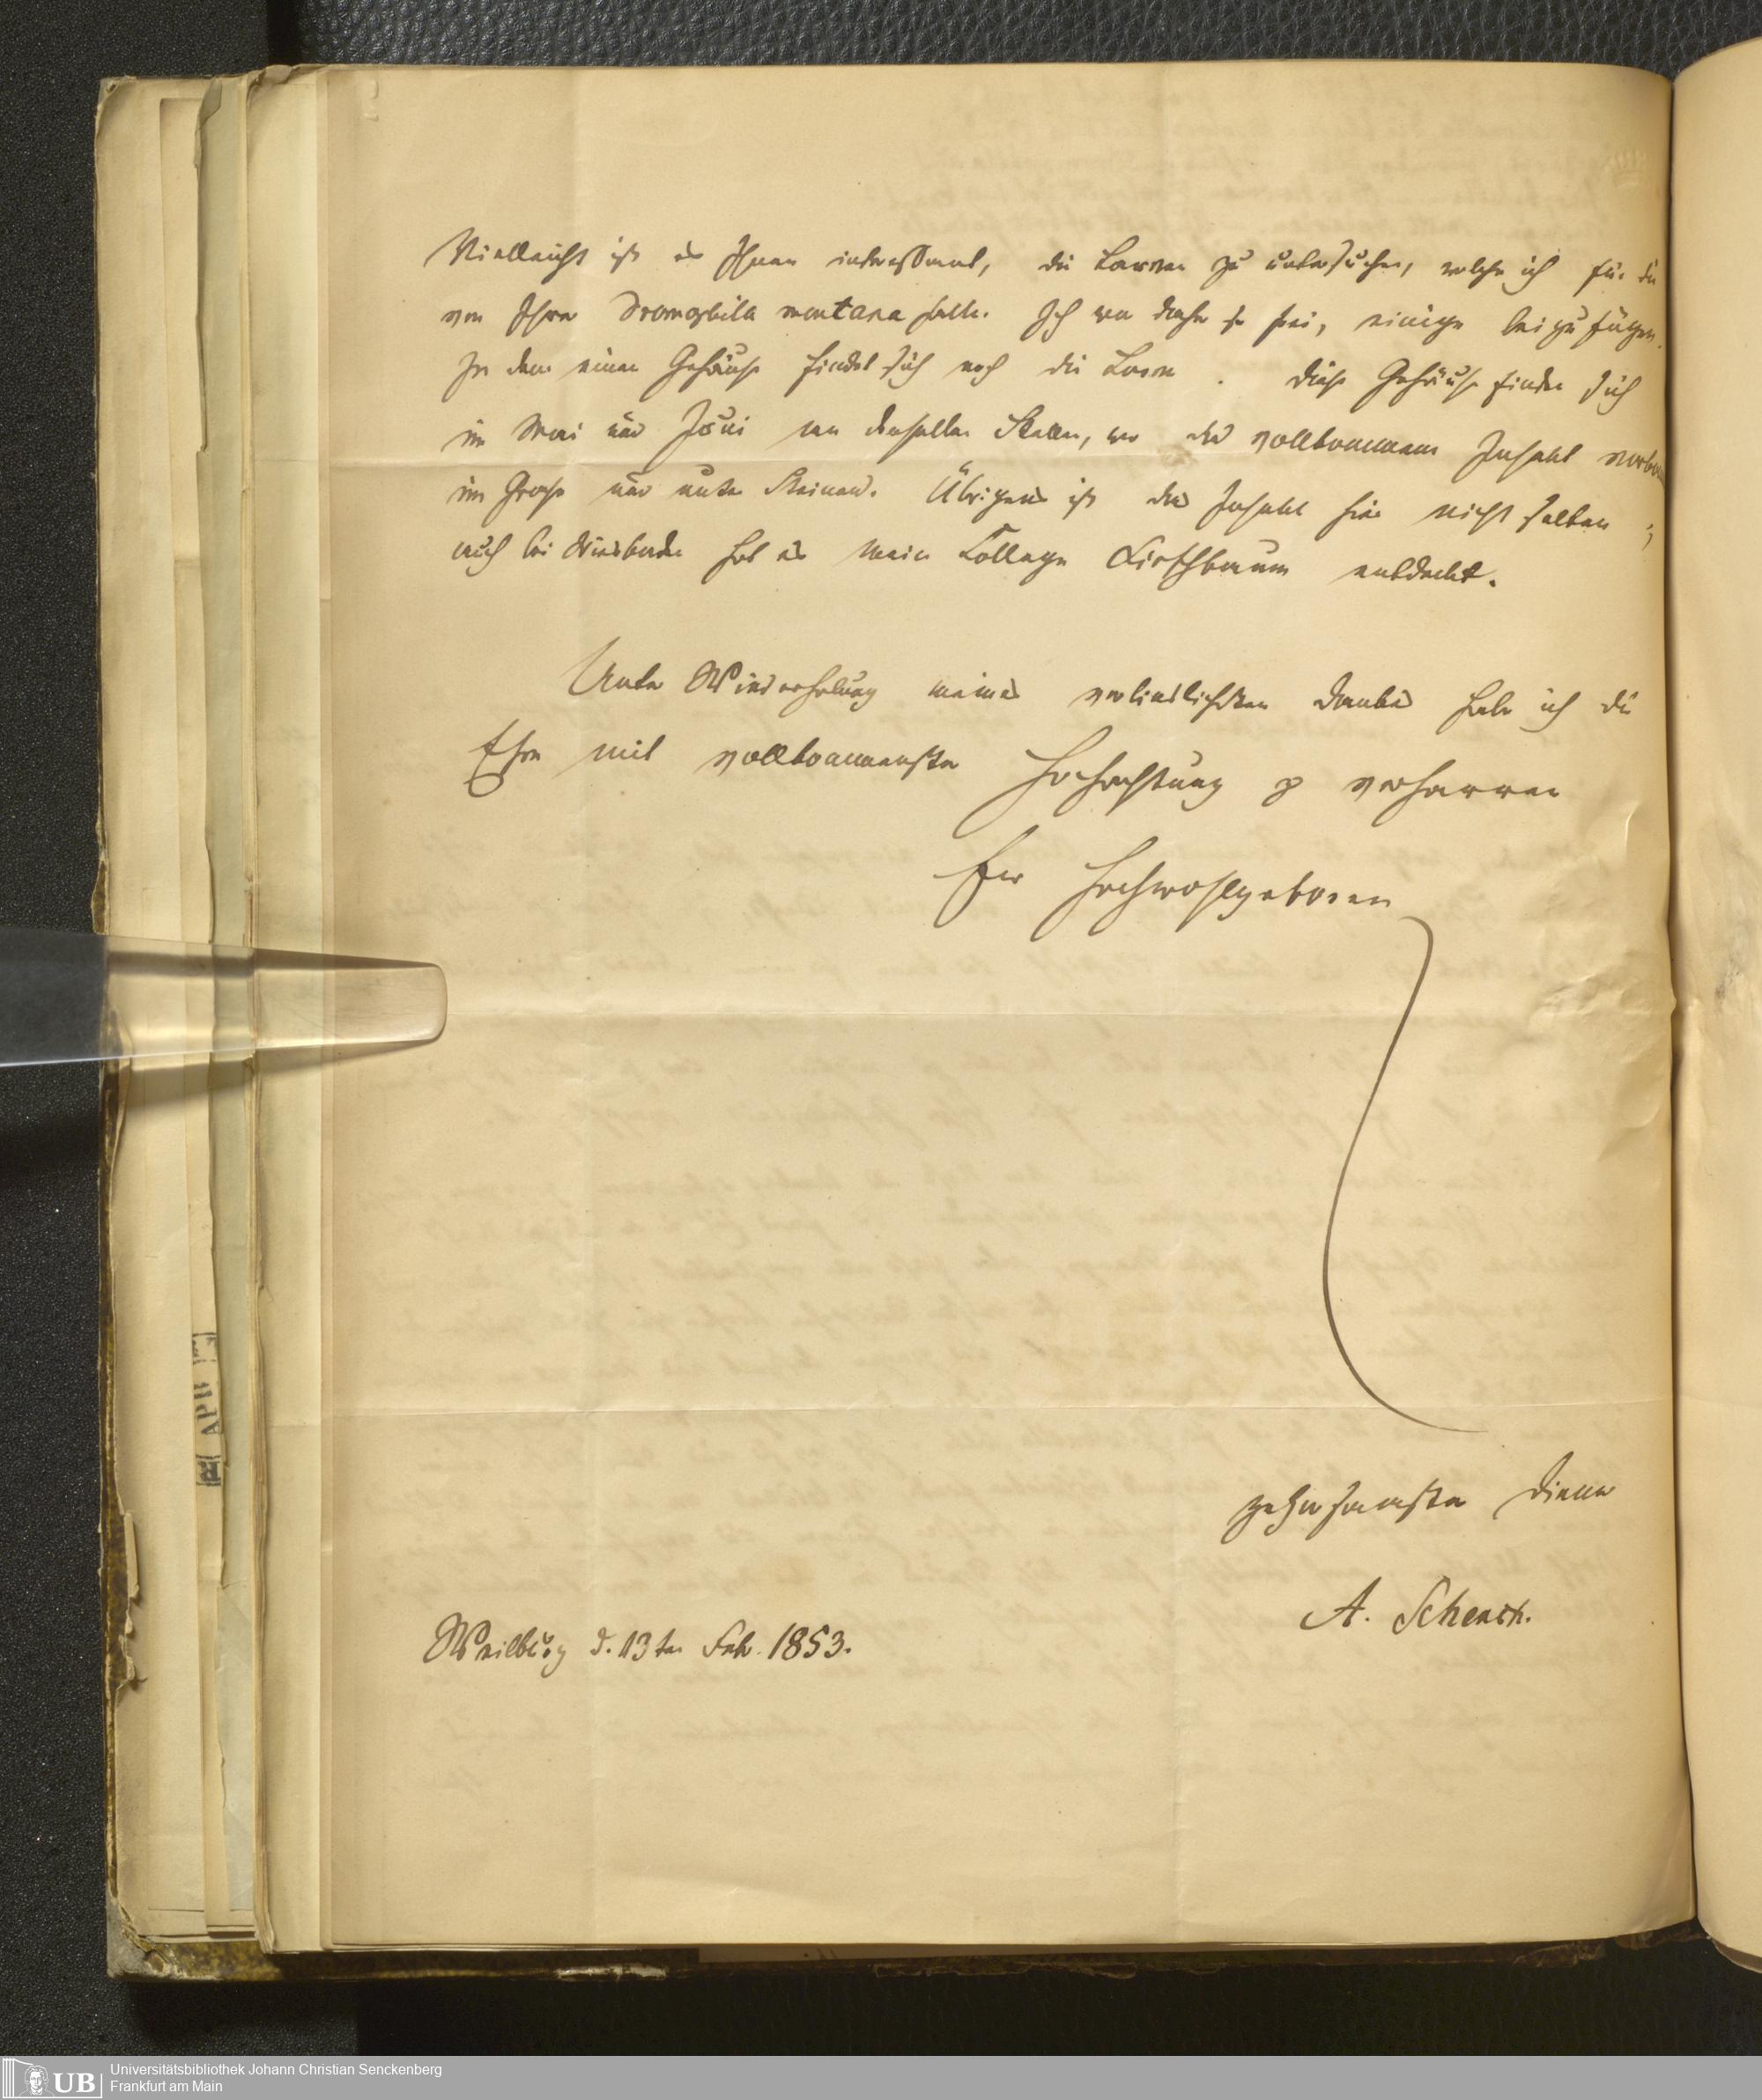 Vielleicht ist es Ihnen interessant, die Larven zu untersuchen, welche ich für die
von Ihrer Dromogbila montana halte. Ich war daher so frei, einige beizufügen.
In dem einen Gehäuse findet sich noch die Larve. Diese Gehäuse finden sich
im Mai und Juni an denselben Stellen, wo das vollkommene Insekt
im Grase und unter Steinen. Übrigens ist das Insekt hier nicht selten;
auch bei Wiesbaden hat es mein College Kirschbaum entdeckt.
Unter Wiederholung meines verbindlichsten Dankes habe ich die
Ehre mit vollkommenster Hochachtung zu verharren
Ew Hochwohlgeboren
gehorsamster Diener
A. Schenck.
Weilburg d. 13ten Feb. 1853.
UB
Universitätsbibliothek Johann Christian Senckenberg
Frankfurt am Main